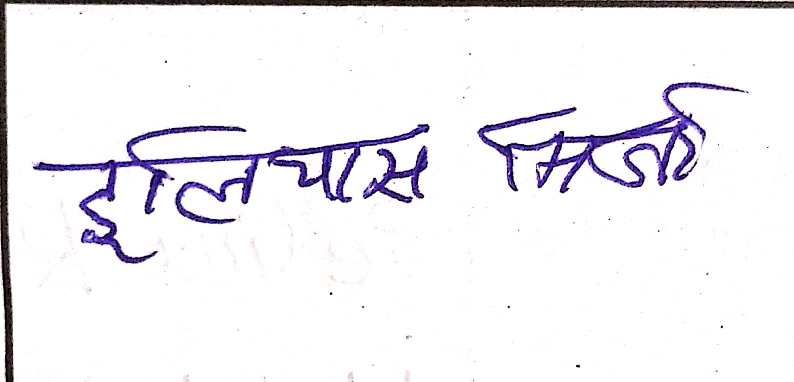 इलियास मिर्जा